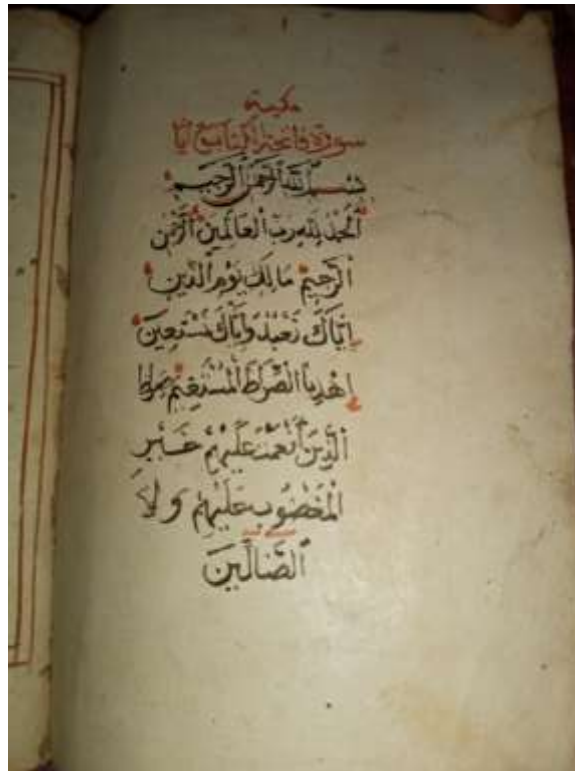 مكية
سورة فاتحة الكتاب سبع آيات
بسم الله الرحمن الرحيم
ٱلحمد لله رب ٱلعالمين ٱلرحمن
ٱلرحيم مالك يوم ٱلدين
إياك نعبد وإياك نستعين
إهدنا ٱلصراط ٱلمستقيم صراط
ٱلذين أنعمت عليهم غير
المغضوب عليهم ولا
ٱلضالين